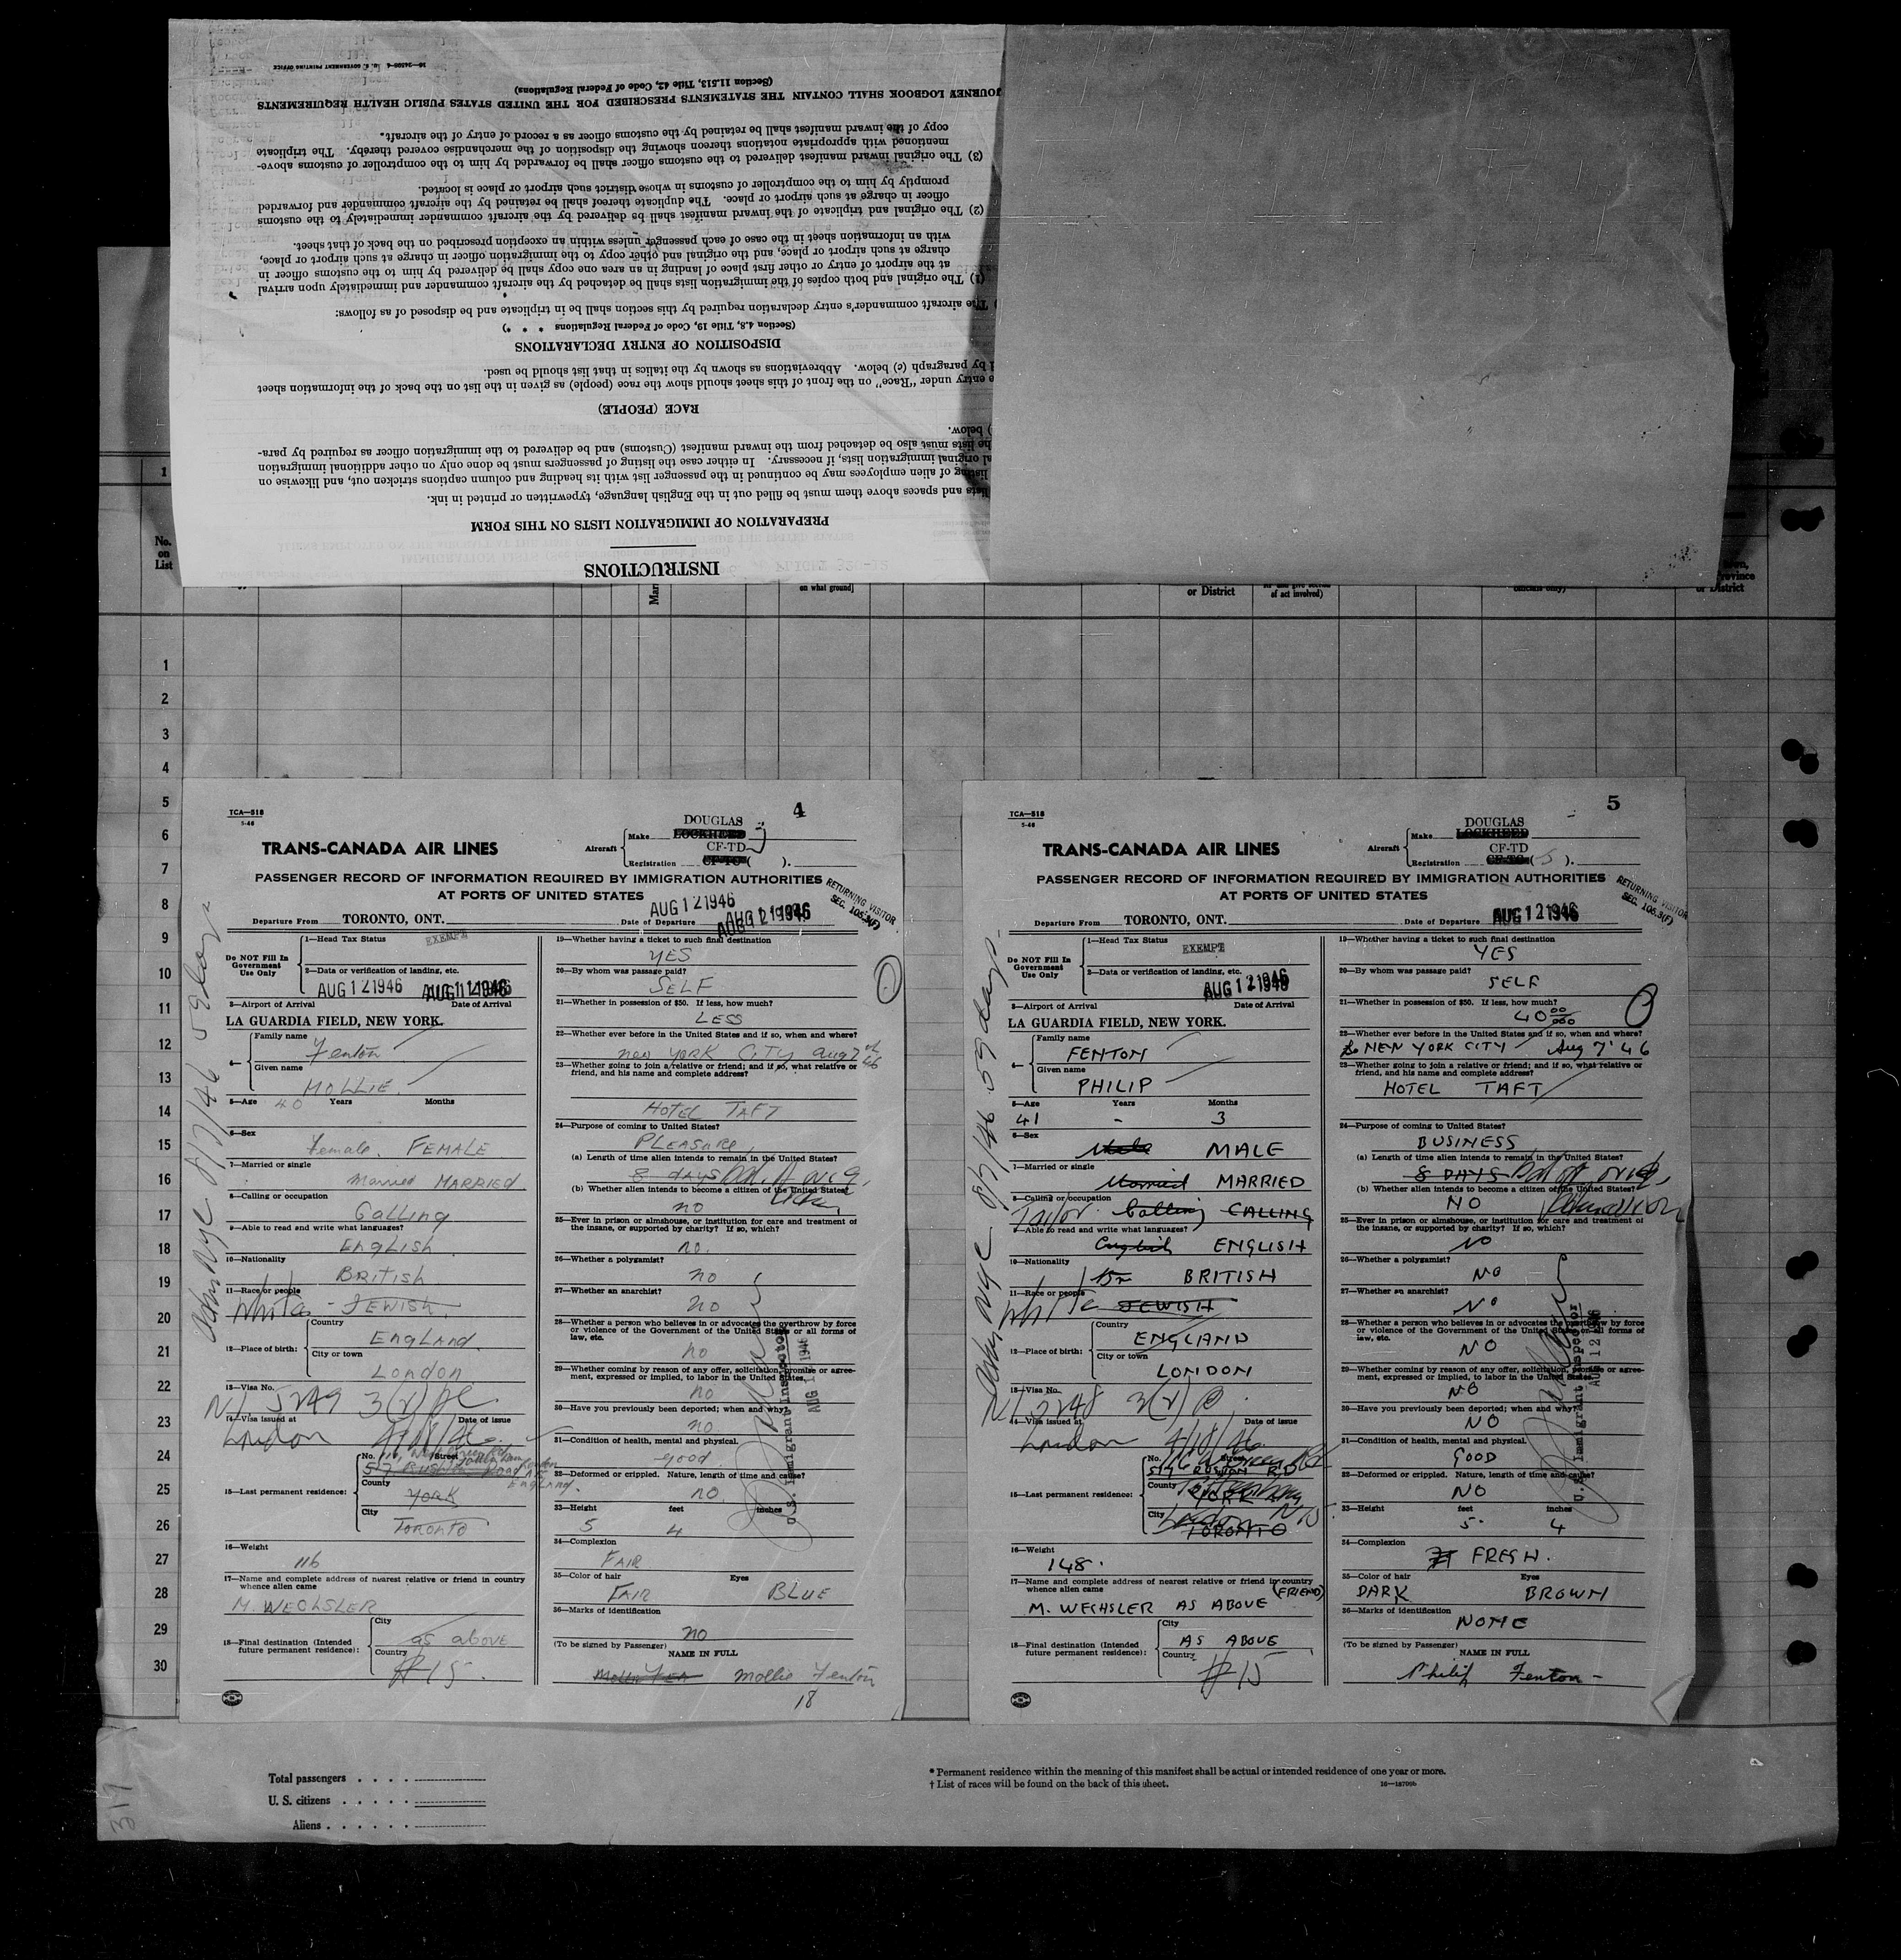 INSTRUCTIONS
PREPARATION OF IMMIGRATION LISTS ON THIS FORM
lists and spaces above them must be filled out in the English language, typewritten or printed in ink.
listing of alien employees may be continued in the passenger list with its heading and column captions stricken out, and likewise on
al original immigration lists, if necessary. In either case the listing of passengers must be done only on other additional immigration
he lists must also be detached from the inward manifest (Customs) and be delivered to the immigration officer as required by para-
) below.
RACE (PEOPLE)
e entry under "Race" on the front of this sheet should show the race (people) as given in the list on the back of the information sheet
d by paragraph (c) below. Abbreviations as shown by the italics in that list should be used.
DISPOSITION OF ENTRY DECLARATIONS
(Section 4.8, Title 19, Code of Federal Regulations * * *)
) The aircraft commander's entry declaration required by this section shall be in triplicate and be disposed of as follows:
(1) The original and both copies of the immigration lists shall be detached by the aircraft commander and immediately upon arrival
at the airport of entry or other first place of landing in an area one copy shall be delivered by him to the customs officer in
charge at such airport or place, and the original and other copy to the immigration officer in charge at such airport or place,
with an information sheet in the case of each passenger unless within an exception prescribed on the back of that sheet.
(2) The original and triplicate of the inward manifest shall be delivered by the aircraft commander immediately to the customs
officer in charge at such airport or place. The duplicate thereof shall be retained by the aircraft commander and forwarded
promptly by him to the comptroller of customs in whose district such airport or place is located.
(3) The original inward manifest delivered to the customs officer shall be forwarded by him to the comptroller of customs above-
mentioned with appropriate notations thereon showing the disposition of the merchandise covered thereby. The triplicate
copy of the inward manifest shall be retained by the customs officer as a record of entry of the aircraft.
JOURNEY LOGBOOK SHALL CONTAIN THE STATEMENTS PRESCRIBED FOR THE UNITED STATES PUBLIC HEALTH REQUIREMENTS
(Section 11.513, Title 42, Code of Federal Regulations)
U. S. GOVERNMENT PRINTING OFFICE
1
No.
on
List
on what ground]
or District
of act involved)
officials only)
Province
or District
1
2
3
4
5
6
7
8
9
10
11
12
13
14
15
16
17
18
19
20
21
22
23
24
25
26
27
28
29
30
TCA—518
5-46
4
TRANS-CANADA AIR LINES
Aircraft
Make DOUGLAS LOCKHEED
Registration CF-TD CF-TC ( ).
PASSENGER RECORD OF INFORMATION REQUIRED BY IMMIGRATION AUTHORITIES
AT PORTS OF UNITED STATES
RETURNING VISITOR
SEC. 106.3(F)
Departure From TORONTO, ONT.
Date of Departure AUG 12 1946 AUG 12 1946
Do NOT Fill In
Government
Use Only
1—Head Tax Status EXEMPT
2—Data or verification of landing, etc.
AUG 12 1946
3—Airport of Arrival Date of Arrival
LA GUARDIA FIELD, NEW YORK.
4—
Family name
Fenton
Given name
MOLLIE
5—Age 40 Years Months
6—Sex
Female. FEMALE
7—Married or single
Married MARRIED
8—Calling or occupation
Calling
9—Able to read and write what languages?
English
10—Nationality
BRITISH
11—Race or people
White - JEWISH
12—Place of birth:
Country
ENGLAND.
City or town
LONDON
13—Visa No.
NI 5249 3(2)
14—Visa issued at Date of issue
London 4/18/46
15—Last permanent residence:
No. Street
57 Rusholm Road
County
YORK
City
TORONTO
16—Weight
116
17—Name and complete address of nearest relative or friend in country
whence alien came
M. WECHSLER
18—Final destination (Intended
future permanent residence):
City
as above
Country
#15
19—Whether having a ticket to such final destination
YES
20—By whom was passage paid?
SELF
21—Whether in possession of $50. If less, how much?
LESS
22—Whether ever before in the United States and if so, when and where?
NEW YORK CITY Aug 7th 46
23—Whether going to join a relative or friend; and if so, what relative or
friend, and his name and complete address?
HOTEL TAFT
24—Purpose of coming to United States?
PLEASURE
(a) Length of time alien intends to remain in the United States?
8 DAYS Bal. of orig.
(b) Whether alien intends to become a citizen of the United States?
no
25—Ever in prison or almshouse, or institution for care and treatment of
the insane, or supported by charity? If so, which?
no.
26—Whether a polygamist?
no
27—Whether an anarchist?
no
28—Whether a person who believes in or advocates the overthrow by force
or violence of the Government of the United States or all forms of
law, etc.
no
29—Whether coming by reason of any offer, solicitation, promise or agree-
ment, expressed or implied, to labor in the United States.
no
30—Have you previously been deported; when and why?
no
31—Condition of health, mental and physical.
good
32—Deformed or crippled. Nature, length of time and cause?
no
33—Height feet inches
5 4
34—Complexion
FAIR
35—Color of hair Eyes
FAIR BLUE
36—Marks of identification
no
(To be signed by Passenger) NAME IN FULL
Mollie Fenton
18
U.S. Immigrant Inspector
AUG 12 1946
Adm NYC 8/7/46 59 days
TCA—518
5-46
5
TRANS-CANADA AIR LINES
Aircraft
Make DOUGLAS LOCKHEED
Registration CF-TD CF-TC (5 ).
PASSENGER RECORD OF INFORMATION REQUIRED BY IMMIGRATION AUTHORITIES
AT PORTS OF UNITED STATES
RETURNING VISITOR
SEC. 106.3(F)
Departure From TORONTO, ONT.
Date of Departure AUG 12 1946
Do NOT Fill In
Government
Use Only
1—Head Tax Status EXEMPT
2—Data or verification of landing, etc.
AUG 12 1946
3—Airport of Arrival Date of Arrival
LA GUARDIA FIELD, NEW YORK.
4—
Family name
FENTON
Given name
PHILIP
5—Age Years Months
41 - 3
6—Sex
Male MALE
7—Married or single
Married MARRIED
8—Calling or occupation
Tailor Calling CALLING
9—Able to read and write what languages?
English ENGLISH
10—Nationality
Br BRITISH
11—Race or people
White JEWISH
12—Place of birth:
Country
ENGLAND
City or town
LONDON
13—Visa No.
NI 5248 3(2)
14—Visa issued at Date of issue
London 4/18/46
15—Last permanent residence:
No. Street
County
YORK
City
London N15
TORONTO
16—Weight
148.
17—Name and complete address of nearest relative or friend in country
whence alien came (FRIEND)
M. WECHSLER AS ABOVE
18—Final destination (Intended
future permanent residence):
City
AS ABOVE
Country
#15
19—Whether having a ticket to such final destination
YES
20—By whom was passage paid?
SELF
21—Whether in possession of $50. If less, how much?
40 00/000
22—Whether ever before in the United States and if so, when and where?
NEW YORK CITY Aug 7' 46
23—Whether going to join a relative or friend; and if so, what relative or
friend, and his name and complete address?
HOTEL TAFT
24—Purpose of coming to United States?
BUSINESS
(a) Length of time alien intends to remain in the United States?
8 DAYS Bal of orig.
(b) Whether alien intends to become a citizen of the United States?
NO
25—Ever in prison or almshouse, or institution for care and treatment of
the insane, or supported by charity? If so, which?
NO
26—Whether a polygamist?
NO
27—Whether an anarchist?
NO
28—Whether a person who believes in or advocates the overthrow by force
or violence of the Government of the United States or all forms of
law, etc.
NO
29—Whether coming by reason of any offer, solicitation, promise or agree-
ment, expressed or implied, to labor in the United States.
NO
30—Have you previously been deported; when and why?
NO
31—Condition of health, mental and physical.
GOOD
32—Deformed or crippled. Nature, length of time and cause?
NO
33—Height feet inches
5 4
34—Complexion
FRESH.
35—Color of hair Eyes
DARK BROWN
36—Marks of identification
NONE
(To be signed by Passenger) NAME IN FULL
Philip Fenton
U.S. Immigrant Inspector
AUG 12 1946
Adm NYC 8/7/46 59 days
Total passengers . . . .
U. S. citizens . . . . .
Aliens . . . . . .
* Permanent residence within the meaning of this manifest shall be actual or intended residence of one year or more.
† List of races will be found on the back of this sheet.
317